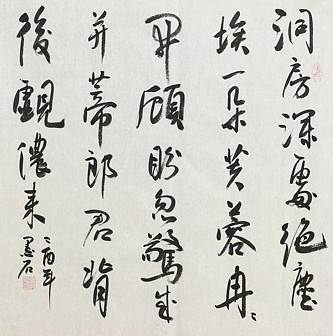 洞房深處絕塵
埃一朵芙蓉冉々
開顧盼忽驚成
并蒂郎君背
後覷儂来
乙酉年
墨石